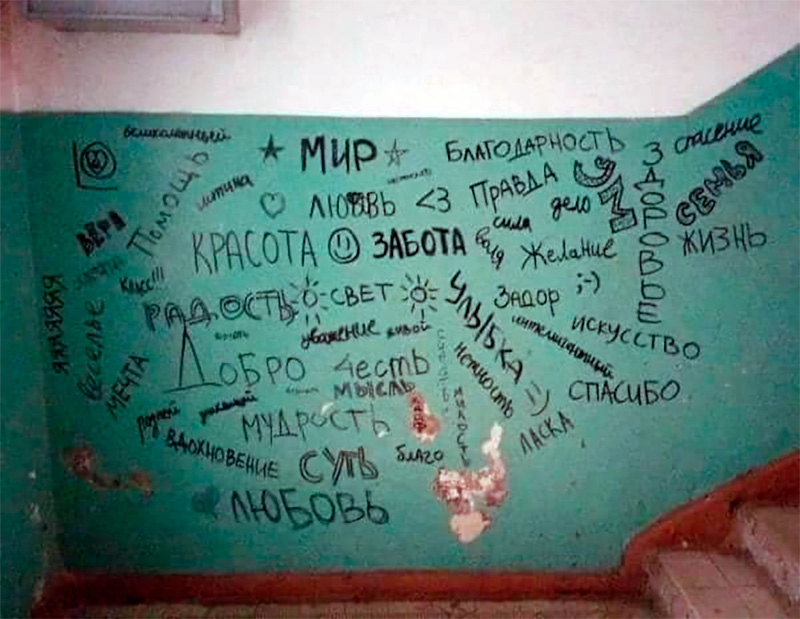 великолепный
МИР
БЛАГОДАРНОСТЬ
спасение
Помощь
истина
ЛЮБОВЬ <3
ПРАВДА
дело
ЗДОРОВЬЕ
СЕМЬЯ
ВЕРА
КРАСОТА
ЗАБОТА
сила
воля
Желание
ЖИЗНЬ
КЛАСС!!!
РАДОСТЬ
СВЕТ
УЛЫБКА =)
ЗАДОР ;-)
ИСКУССТВО
веселье
МЕЧТА
уважение
живой
интеллигентный
ДОБРО
Честь
МЫСЛЬ
нежность
СПАСИБО
родной
МУДРОСТЬ
ЛАСКА
ВДОХНОВЕНИЕ
СУТЬ
благо
ЛЮБОВЬ